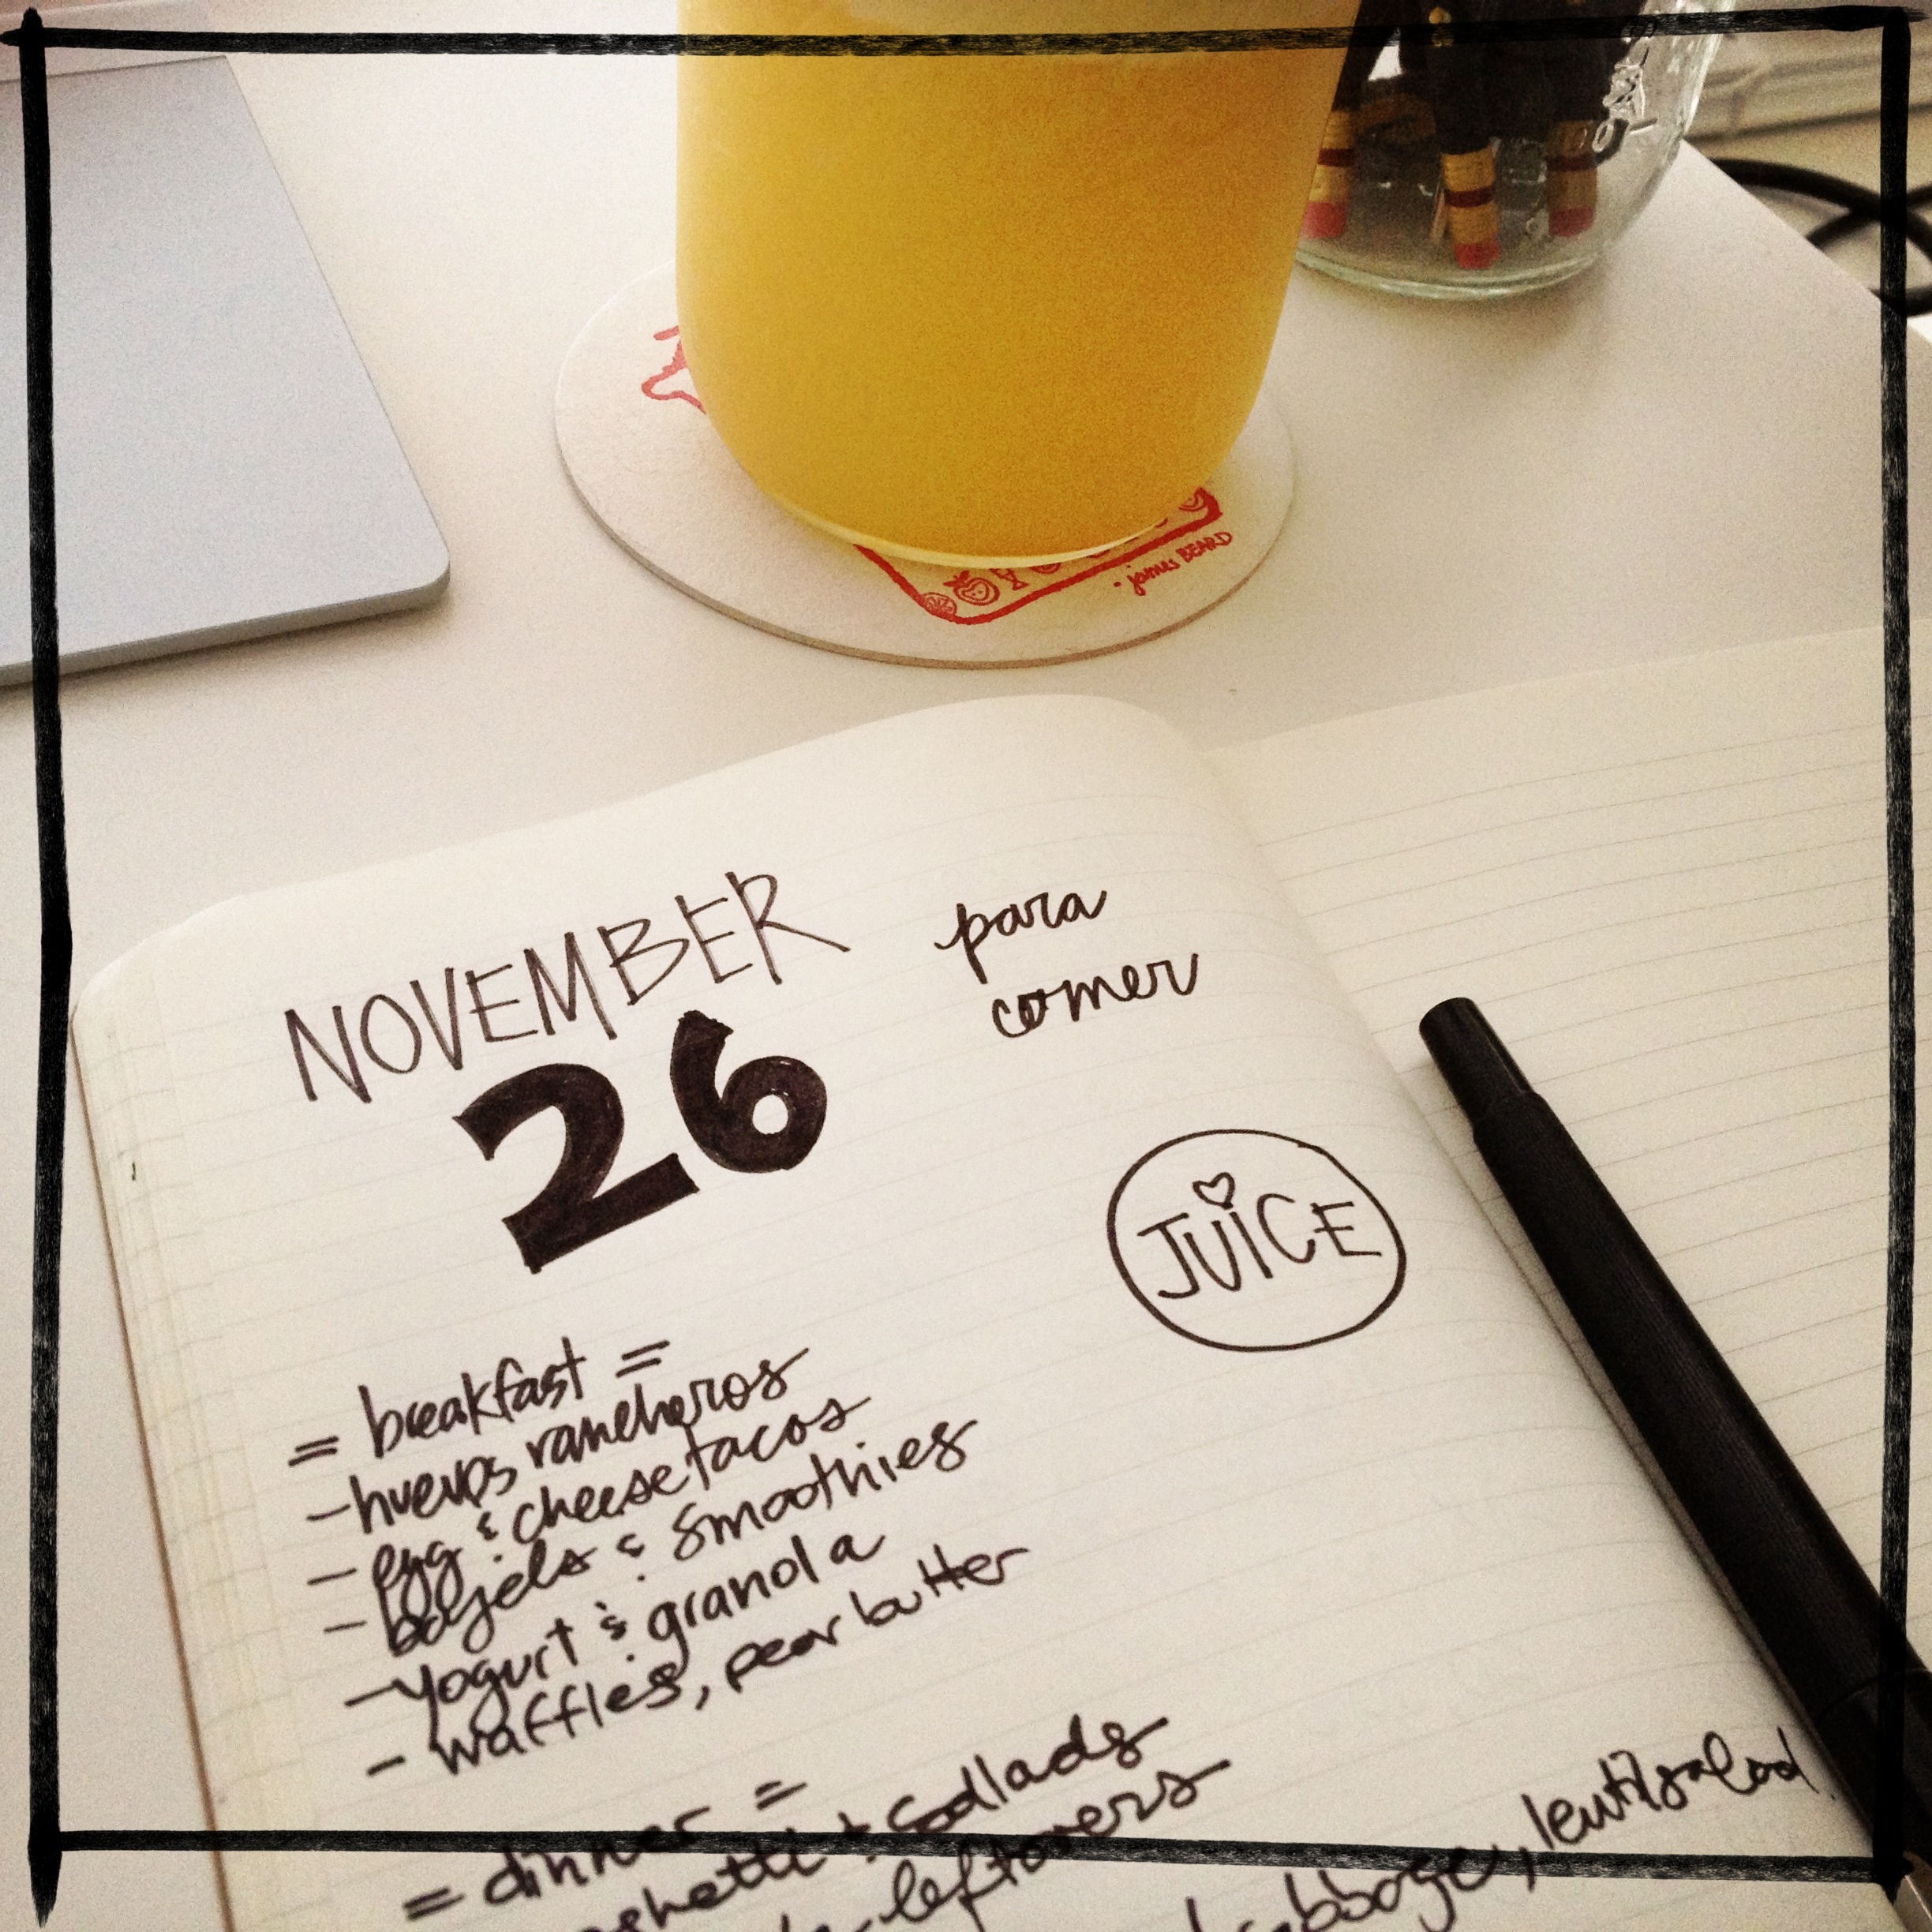 - james BEARD
NOVEMBER
26
para
comer
JUICE
= breakfast =
- huevos rancheros
- egg & cheese tacos
- bagels & smoothies
- yogurt & granola
- waffles, pear butter
= dinner =
leftovers
, lentil salad